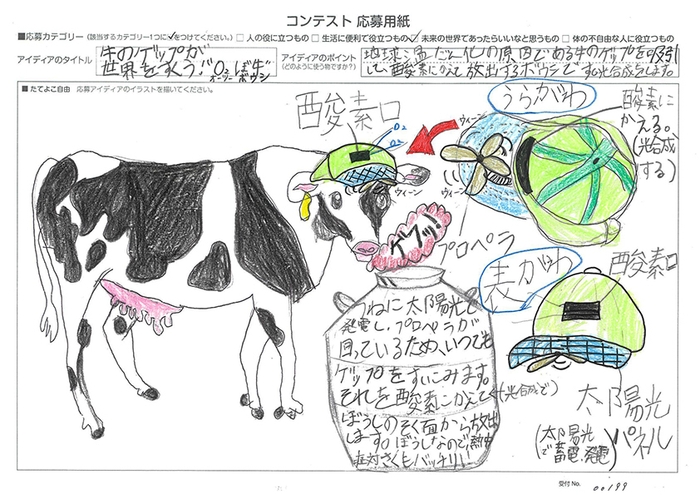 コンテスト 応募用紙
■応募カテゴリー（該当するカテゴリー1つに✓をつけてください。） □ 人の役に立つもの □ 生活に便利で役立つもの ☑ 未来の世界であったらいいなと思うもの □ 体の不自由な人に役立つもの
アイディアのタイトル
牛のゲップが
世界をすくう！O₃ぼ牛
オーツー ボウシ
アイディアのポイント
（どのように使う物ですか？）
地球温だん化の原因である牛のゲップを吸引
し、酸素にかえて放出するボウシです。光合成をします。
■たてよこ自由 応募アイディアのイラストを描いてください。
酸素口
O₂
O₂
ウィーン
ウィーン
ウィーン
ゲップ！
プロペラ
うらがわ
酸素に
かえる。
（光合成
する）
表がわ
酸素口
太陽光
パネル
（太陽光
で蓄電、発電）
つねに太陽光で
発電し、プロペラが
回っているため、いつでも
ゲップをすいこみます。
それを酸素にかえて（光合成で）
ぼうしのそく面から放出
します。ぼうしなので熱中
症対さくもバッチリ！
受付 No. 00199